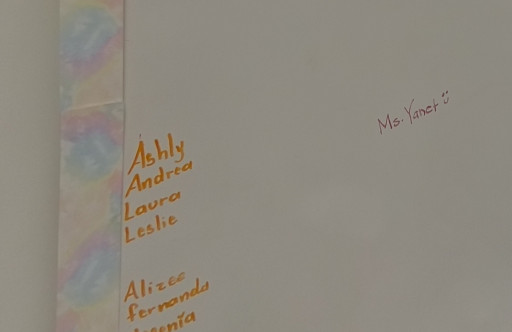 Ms. Yanet
Ashly
Andrea
Laura
Leslie
Alizee
fernanda